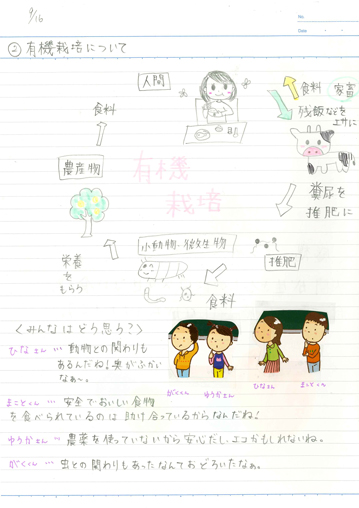 9/16
No
Date
② 有機栽培について
人間
食料
家畜
残飯などを
エサに
食料
農産物
有機
栽培
糞尿を
堆肥に
小動物・微生物
堆肥
栄養
を
もらう
食料
〈みんなはどう思う?〉
ひなさん … 動物との関わりも
あるんだね!奥がふかい
なぁ〜。
がくくん
ゆうかさん
ひなさん
まことくん
まことくん … 安全でおいしい食物
を食べられているのは助け合っているからなんだね!
ゆうかさん … 農薬を使っていないから安心だし、エコかもしれないね。
がくくん … 虫との関わりもあったなんておどろいたなぁ。